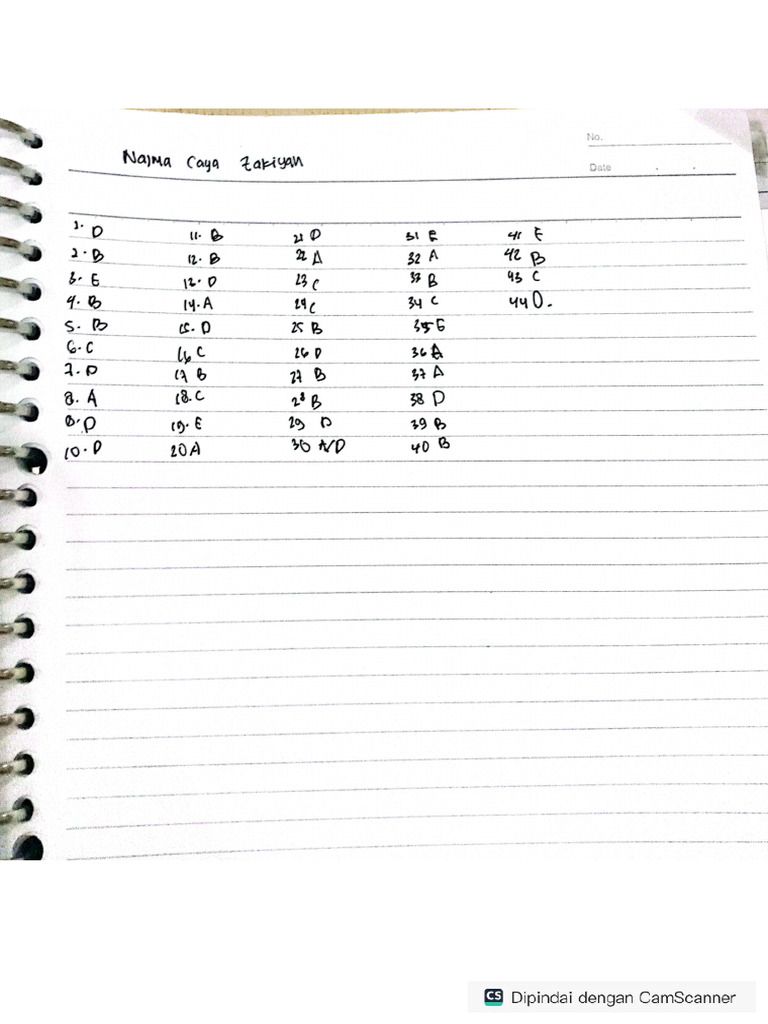 No.
Najma Caya Zakiyah
Date
1. D 11. B 21 D 31 E 41 E
2. B 12. B 22 A 32 A 42 B
3. E 12. D 23 C 33 B 43 C
4. B 14. A 24 C 34 C 44 D.
5. B 15. D 25 B 35 E
6. C 16 C 26 D 36 A
7. D 17 B 27 B 37 A
8. A 18. C 28 B 38 D
9. D 19. E 29 D 39 B
10. D 20 A 30 A/D 40 B
CS Dipindai dengan CamScanner